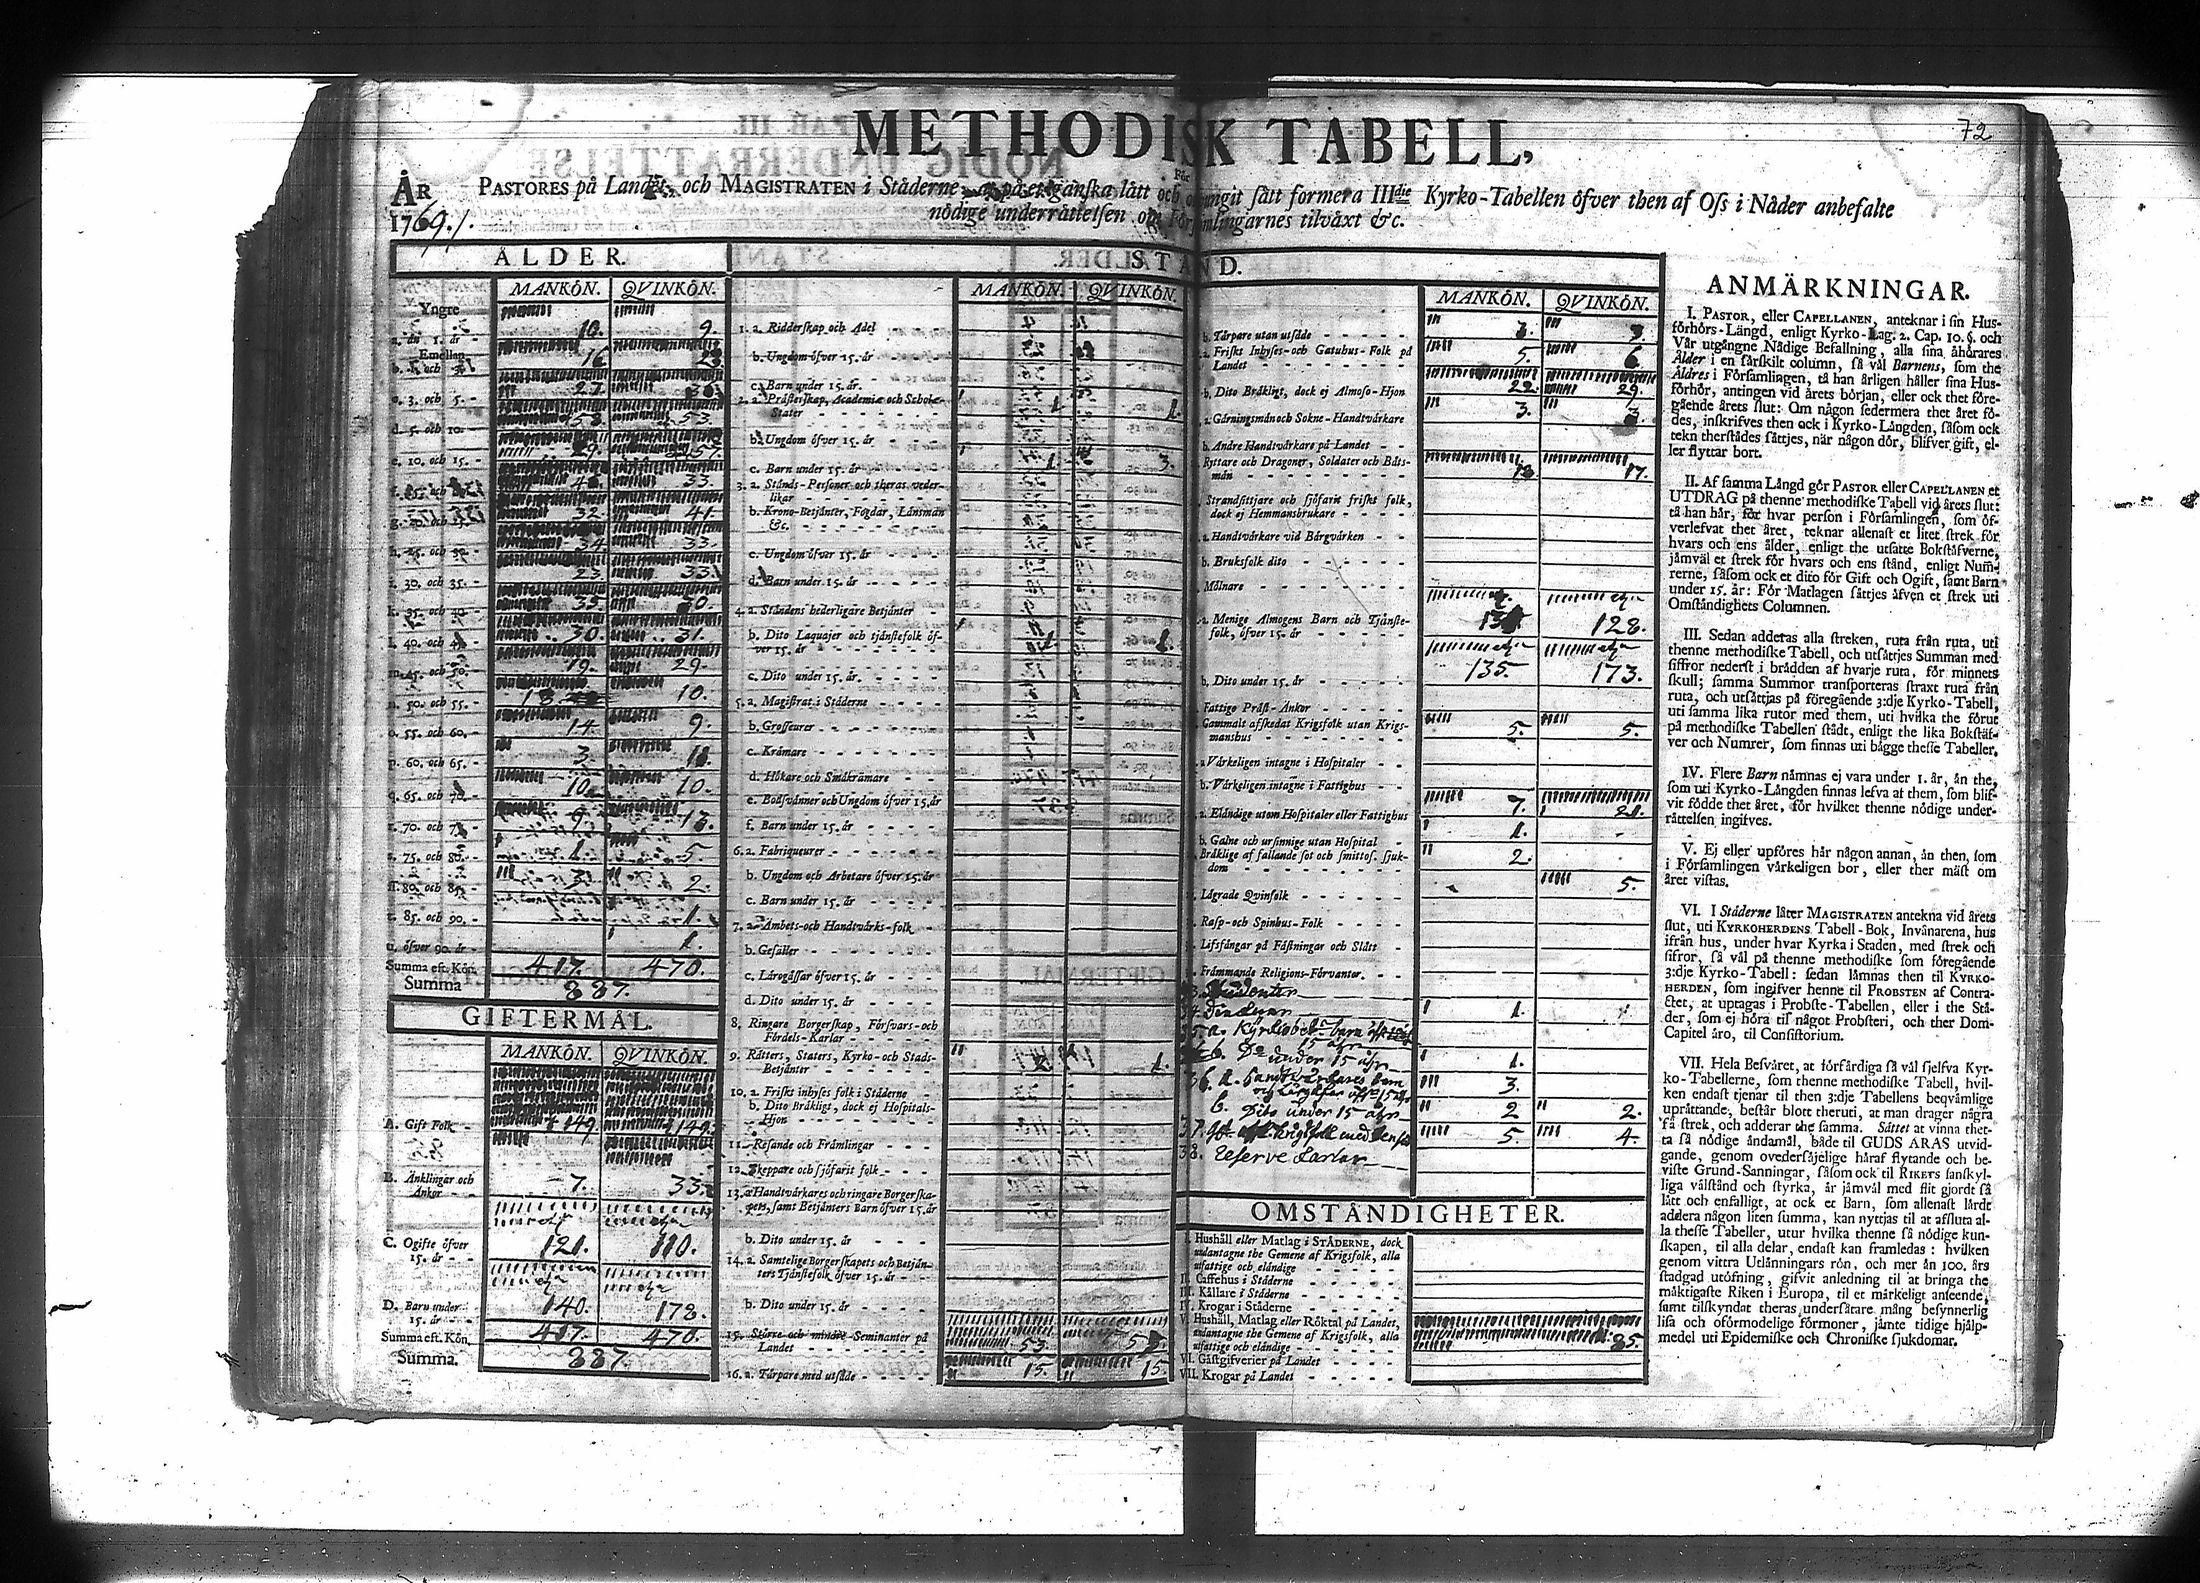 72
METHODISK TABELL,
För
ÅR PASTORES på Landet, och MAGISTRATEN i Städerne at på et ganska lätt och otvungit sätt formera IIIdie Kyrko-Tabellen öfver then af Oss i Nåder anbefalte
1769. nödige underrättelsen om Församlingarnes tilväxt &c.
ÅLDER.
MANKÖN. QVINKÖN.
Yngre
a. än 1. år - 10. 9.
Emellan
b. 1. och 3. 16 23
c. 3. och 5. - 27. 30.
d. 5. och 10. 58. 53.
e. 10. och 15. - 29. 57.
f. 15. och 46. 33.
g. 20. och 25. 32. 41.
h. 25. och 30. - 34. 33.
i. 30. och 35. - 23. 33.
k. 35. och 40. - 35. 40.
l. 40. och 45. 30. 31.
m. 45. och 50. - 19. 29.
n. 50. och 55. - 18. 10.
o. 55. och 60. - 14. 9.
p. 60. och 65. - 3. 11.
q. 65. och 70. - 10. 10.
r. 70. och 75. 9. 13.
s. 75. och 80. - 1. 5.
ff. 80. och 85. - 3. 2.
t. 85. och 90. - 1.
u. öfver 90. år - 1.
Summa eft. Kön. 417. 470.
Summa 887.
GIFTERMÅL.
MANKÖN. QVINKÖN.
A. Gift Folk - 149. 149.
B. Änklingar och
Änkor - - - 7. 33.
C. Ogifte öfver
15. år - - 121. 110.
D. Barn under
15. år - - 140. 178.
Summa eft. Kön. 417. 470.
Summa. 887.
STÅND.
MANKÖN. QVINKÖN.
1. a. Ridderskap och Adel
b. Ungdom öfver 15. år
c. Barn under 15. år.
2. a. Prästerskap, Academiæ och Schole-
Stater 1. 1.
b. Ungdom öfver 15. år
c. Barn under 15. år 1. 3.
3. a. Stånds-Personer och theras veder-
likar
b. Krono-Betjänter, Fogdar, Länsmän
&c.
c. Ungdom öfver 15. år
d. Barn under 15. år
4. a. Ståndens hederligare Betjänter
b. Dito Laquajer och tjänstefolk öf-
ver 15. år 1. 1.
c. Dito under 15. år.
5. a. Magistrat i Städerne
b. Grosseurer
c. Krämare
d. Hökare och Småkrämare
e. Bodsvänner och Ungdom öfver 15. år
f. Barn under 15. år
6. a. Fabriqueurer
b. Ungdom och Arbetare öfver 15. år
c. Barn under 15. år
7. a. Ämbets- och Handtvärks-folk
b. Gesäller
c. Lärogåssar öfver 15. år
d. Dito under 15. år
8. Ringare Borgerskap, Försvars- och
Fördels-Karlar
9. Rätters, Staters, Kyrko- och Stads-
Betjänter 2. 1.
10. a. Friskt inhyses folk i Städerne
b. Dito Bräkligt, dock ej Hospitals-
Hjon
11. Resande och Främlingar
12. Skeppare och sjöfarit folk
13. a. Handtvärkares och ringare Borgerska-
pets, samt Betjänters Barn öfver 15. år
b. Dito under 15. år
14. a. Samtelige Borgerskapets och Betjän-
ters Tjänstefolk öfver 15. år
b. Dito under 15. år
15. Större och mindre Seminanter på
Landet 53. 53.
16. a. Torpare med utsäde 15. 15.
MANKÖN. QVINKÖN.
b. Torpare utan utsäde 3. 3
a. Friskt Inhyses- och Gatuhus-Folk på
Landet 5. 6
b. Dito Bräkligt, dock ej Almoso-Hjon 22. 29.
a. Gärningsmän och Sokne-Handtvärkare 3. 3.
b. Andre Handtvärkare på Landet
Ryttare och Dragoner, Soldater och Båts-
män 18 17.
Strandsittjare och sjöfarit friskt folk,
dock ej Hemmansbrukare
a. Handtvärkare vid Bärgvärken
b. Bruksfolk dito
Mölnare
a. Menige Almogens Barn och Tjänste-
folk, öfver 15. år 128.
b. Dito under 15. år 135. 173.
Fattige Präst-Änkor
Gammalt afskedat Krigsfolk utan Krigs-
manshus 5. 5.
a. Värkeligen intagne i Hospitaler
b. Värkeligen intagne i Fattighus
a. Eländige utom Hospitaler eller Fattighus 7. 21.
b. Galne och ursinnige utan Hospital 1.
Bräklige af fallande sot och smittos. sjuk-
dom 2.
Lägrade Qvinfolk 5.
Rasp- och Spinhus-Folk
Lifsfångar på Fästningar och Slått
Främmande Religions-Förvanter.
33. Studenter
34. 1.
35. a. barn öfver
15 åhr
b. Do under 15 åhr 1.
36. a. Handtvärkares barn
och Lärgåssar öfver 15 åhr 3.
b. Dito under 15 åhr 2 2.
37. krigsfolk med 5. 4.
38. Reserve Karlar
OMSTÄNDIGHETER.
I. Hushåll eller Matlag i STÄDERNE, dock
undantagne the Gemene af Krigsfolk, alla
utfattige och eländige
II. Caffehus i Städerne
III. Källare i Städerne
IV. Krogar i Städerne
V. Hushåll, Matlag eller Röktal på Landet,
undantagne the Gemene af Krigsfolk, alla
utfattige och eländige 85.
VI. Gästgifverier på Landet
VII. Krogar på Landet
ANMÄRKNINGAR.
I. PASTOR, eller CAPELLANEN, anteknar i sin Hus-
förhörs-Längd, enligt Kyrko-Lag. 2. Cap. 10. §. och
Vår utgångne Nådige Befallning, alla sina åhörares
Ålder i en särskilt column, så väl Barnens, som the
Äldres i Församlingen, tå han årligen håller sina Hus-
förhör, antingen vid årets början, eller ock thet före-
gående årets slut: Om någon sedermera thet året fö-
des, inskrifves then ock i Kyrko-Längden, såsom ock
tekn therstädes sättjes, när någon dör, blifver gift, el-
ler flyttar bort.
II. Af samma Längd gör PASTOR eller CAPELLANEN et
UTDRAG på thenne methodiske Tabell vid årets slut:
tå han här, för hvar person i Församlingen, som öf-
verlefvat thet året, teknar allenast et litet strek för
hvars och ens ålder, enligt the utsatte Bokstäfverne,
jämväl et strek för hvars och ens stånd, enligt Num-
rerne, såsom ock et dito för Gift och Ogift, samt Barn
under 15. år: För Matlagen sättjes äfven et strek uti
Omständighets Columnen.
III. Sedan adderas alla streken, ruta från ruta, uti
thenne methodiske Tabell, och utsättjes Summan med
siffror nederst i brädden af hvarje ruta, för minnets
skull; samma Summor transporteras straxt ruta från
ruta, och utsättjas på föregående 3:dje Kyrko-Tabell,
uti samma lika rutor med them, uti hvilka the förut
på methodiske Tabellen stådt, enligt the lika Bokstäf-
ver och Numrer, som finnas uti bägge thesse Tabeller.
IV. Flere Barn nämnas ej vara under 1. år, än the,
som uti Kyrko-Längden finnas lefva af them, som blif-
vit födde thet året, för hvilket thenne nödige under-
rättelsen ingifves.
V. Ej eller upföres här någon annan, än then, som
i Församlingen värkeligen bor, eller ther mäst om
året vistas.
VI. I Städerne låter MAGISTRATEN antekna vid årets
slut, uti KYRKOHERDENS Tabell-Bok, Invånarena, hus
ifrån hus, under hvar Kyrka i Staden, med strek och
sifror, så väl på thenne methodiske som föregående
3:dje Kyrko-Tabell: sedan lämnas then til KYRKO-
HERDEN, som ingifver henne til PROBSTEN af Contra-
ctet, at uptagas i Probste-Tabellen, eller i the Stä-
der, som ej höra til något Probsteri, och ther Dom-
Capitel äro, til Consistorium.
VII. Hela Besväret, at förfärdiga så väl sjelfva Kyr-
ko-Tabellerne, som thenne methodiske Tabell, hvil-
ken endast tjenar til then 3:dje Tabellens beqvämlige
uprättande, består blott theruti, at man drager några
få strek, och adderar the samma. Sättet at vinna thet-
ta så nödige ändamål, både til GUDS ÄRAS utvid-
gande, genom ovedersäjelige häraf flytande och be-
viste Grund-Sanningar, såsom ock til RIKETS sanskyl-
liga välstånd och styrka, är jämväl med flit gjordt så
lätt och enfalligt, at ock et Barn, som allenast lärdt
addera någon liten summa, kan nyttjas til at afsluta al-
la thesse Tabeller, utur hvilka thenne så nödige kun-
skapen, til alla delar, endast kan framledas: hvilken
genom vittra Utlänningars rön, och mer än 100. års
stadgad utöfning, gifvit anledning til at bringa the
mäktigaste Riken i Europa, til et märkeligt anseende,
samt tilskyndat theras undersåtare mång besynnerlig
lisa och oförmodelige förmoner, jämte tidige hjälp-
medel uti Epidemiske och Chroniske sjukdomar.